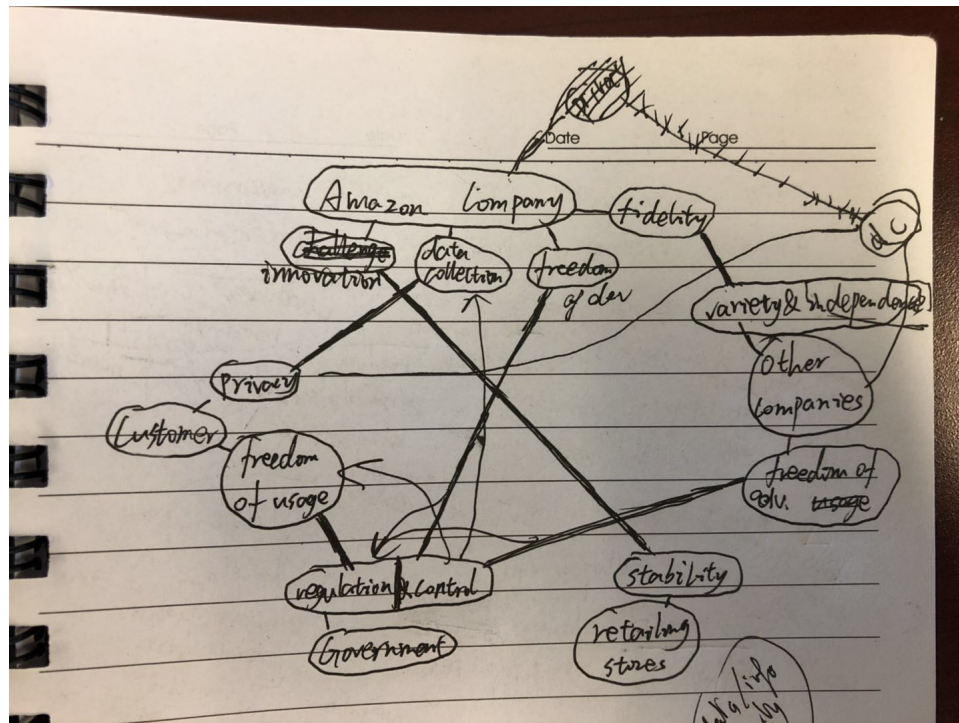 Date
Page
Amazon Company
fidelity
challenge
innovation
data
collection
freedom
of dev
d C
variety & independence
privacy
Other
companies
Customer
freedom
of usage
freedom of
usage
regulation & control
stability
Government
retailing
stores
data/info